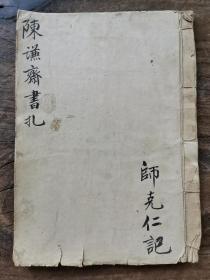 陳謙齋書扎
師克仁記